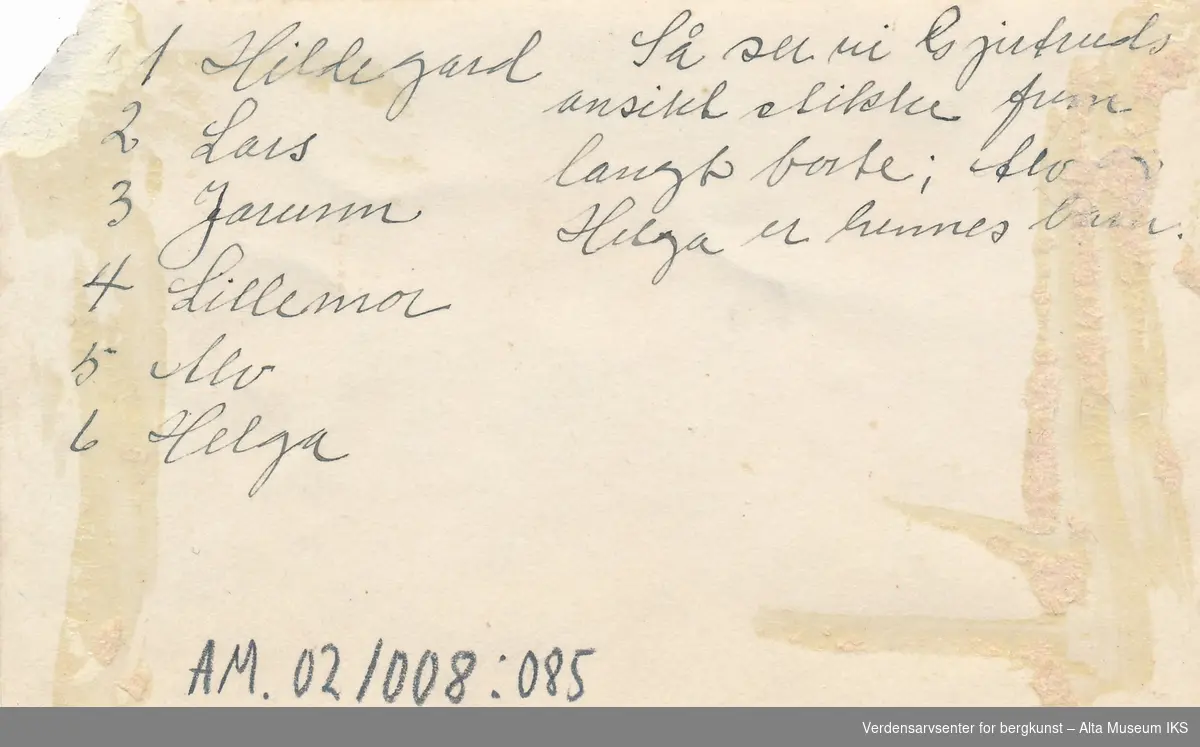 1 Hildegard
2 Lars
3 Jorunn
4 Lillemor
5 Alv
6 Helga
Så ser vi Gjertruds
ansikt stikke frem
langt borte; Alv
Helga er hennes barn.
AM. 02/008:085
Verdensarvsenter for bergkunst – Alta Museum IKS